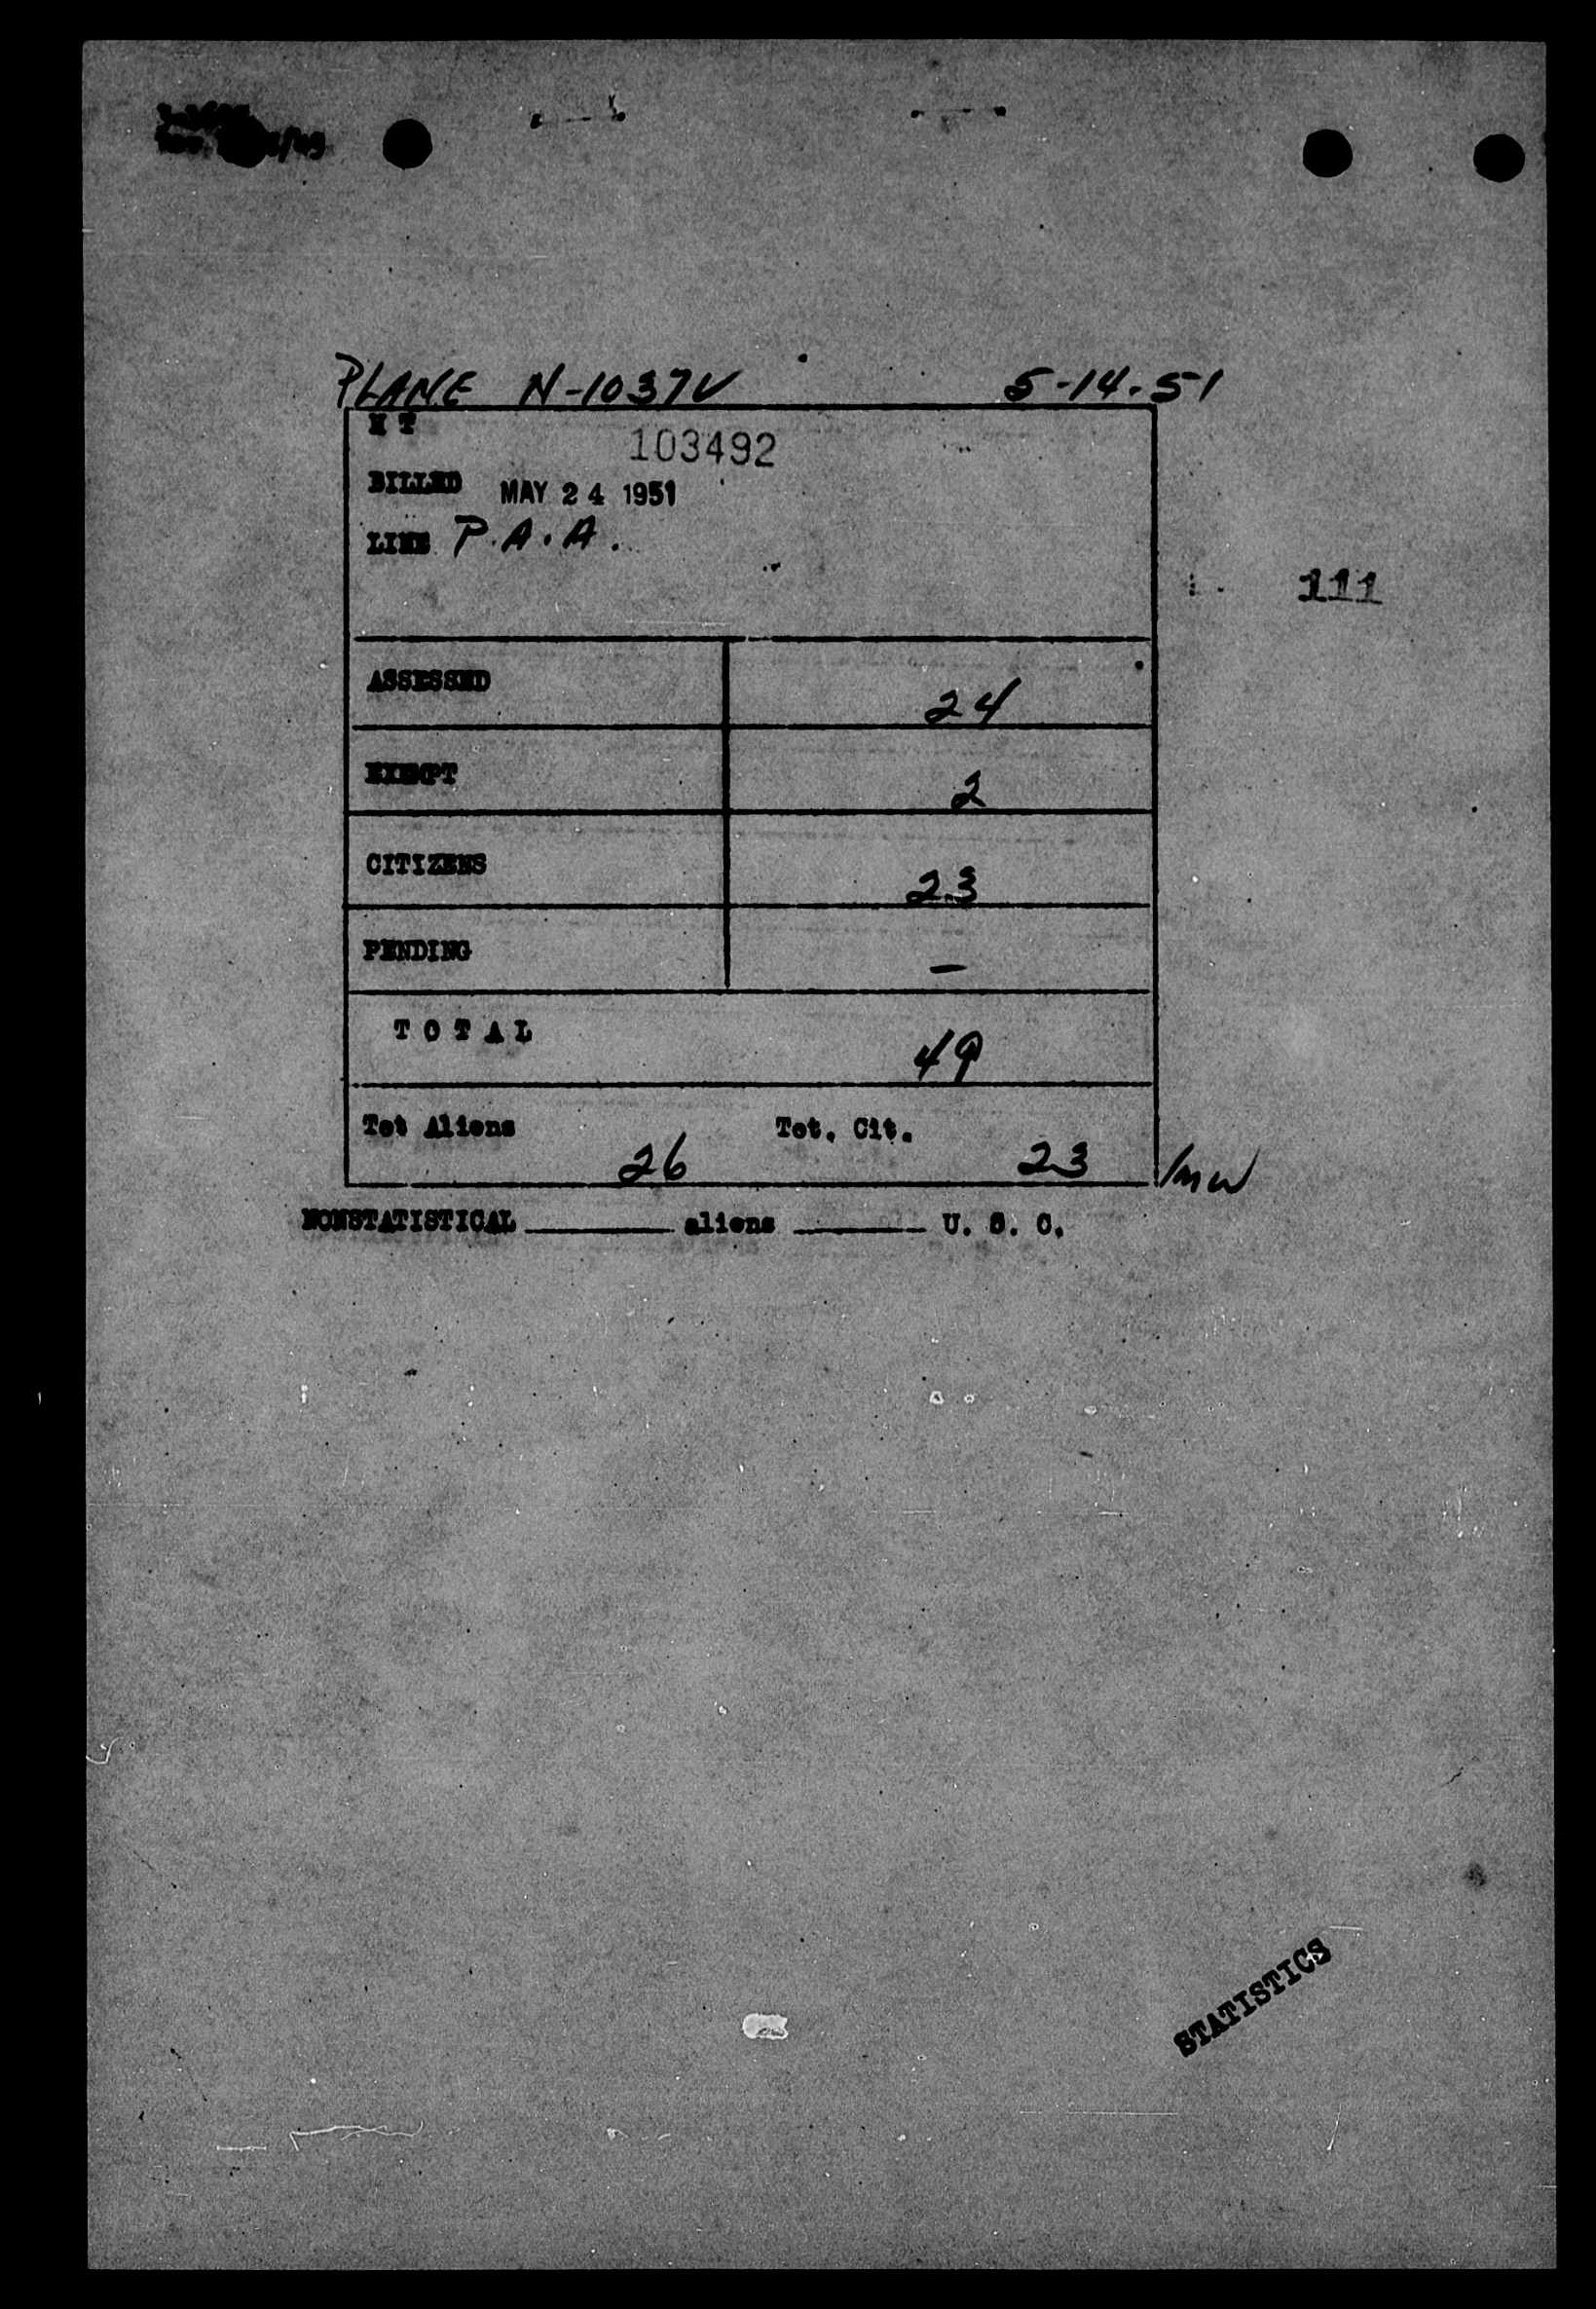 PLANE N-1037V 5-14-51
H T
103492
BILLED MAY 24 1951
LINE P.A.A.
111
ASSESSED 24
EXEMPT 2
CITIZENS 23
PENDING –
T O T A L 49
Tot Aliens 26 Tot. Cit. 23 /mw
NONSTATISTICAL ________ aliens ________ U. S. C.
STATISTICS